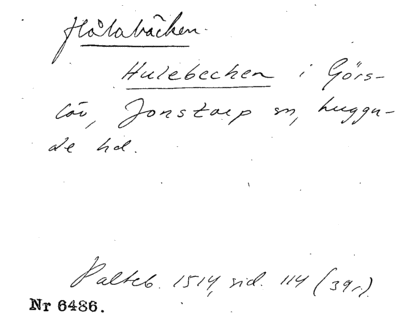 Hålabäcken.
Hulebecken i Görs-
löv, Jonstorp sn, Luggu-
de hd.
Palteb. 1514, sid. 114 (39r).
Nr 6486.